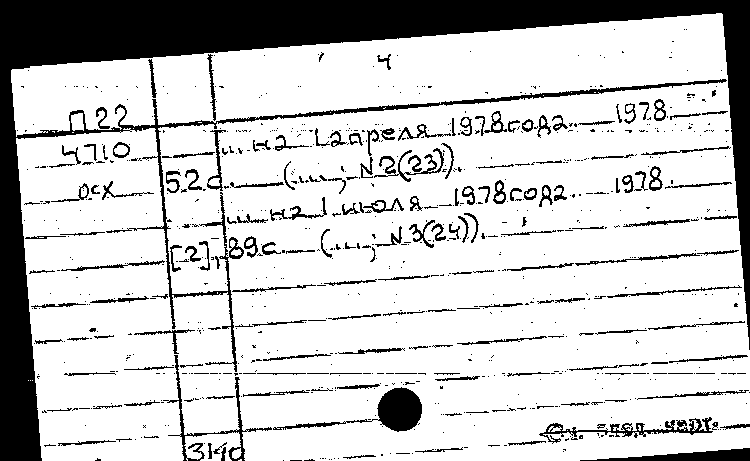 4
П22
4710
осх
... на 1 апреля 1978 года. 1978.
52 с. (...; N 2(23)).
... на 1 июля 1978 года. 1978.
[2], 89 с (...; N 3(24)).
См. след. карт.